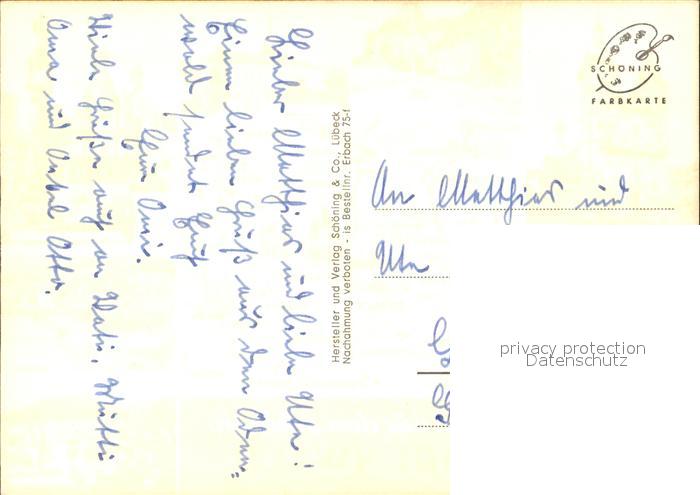 Lieber Matthias und liebe Uta!
Einen lieben Gruß aus dem Oden=
wald sendet Euch
Eure Omi.
Viele Grüße auch an Vati, Mutti
Oma und Onkel Otto.
Hersteller und Verlag Schöning & Co., Lübeck
Nachahmung verboten - is Bestellnr. Erbach 75-f
SCHÖNING
FARBKARTE
An Matthias und
Uta
privacy protection
Datenschutz